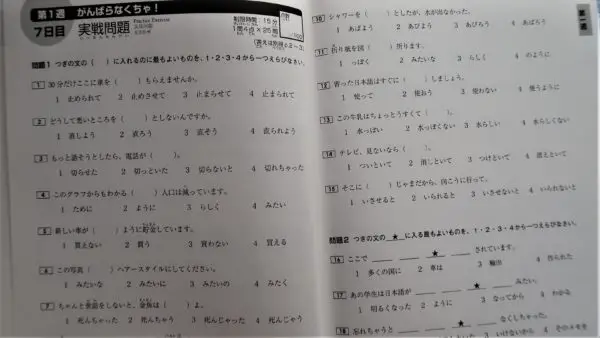 第1週 がんばらなくちゃ!
7日目 実戦問題
Practice Exercises
制限時間：15分
1問4点×25問
/100
問題1 つぎの文の（ ）に入れるのに最もよいものを、1・2・3・4から一つえらびなさい。
1 30分だけここに車を（ ）もらえませんか。
1 止められて 2 止めさせて 3 止まらせて 4 止まられて
2 どうして悪いところを（ ）としないんですか。
1 直しよう 2 直ろう 3 直そう 4 直られよう
3 もっと話そうとしたら、電話が（ ）。
1 切らせた 2 切っといた 3 切らないと 4 切れちゃった
4 このグラフからもわかる（ ）人口は減っています。
1 ために 2 ように 3 らしく 4 みたい
5 新しい車が（ ）ように貯金しています。
1 買えない 2 買う 3 買わない 4 買える
6 この写真（ ）ヘアースタイルにしてください。
1 みたいな 2 みたいに 3 みたいの 4 みたく
7 ちゃんと世話をしないと、金魚は（ ）よ。
1 死んちゃった 2 死んちゃう 3 死んじゃった 4 死んじゃう
10 シャワーを（ ）としたが、水が出なかった。
1 あばよう 2 あびよう 3 あびろう 4 あばろう
11 折り紙を図（ ）折ります。
1 っぽく 2 みたいな 3 らしく 4 のように
12 習った日本語はすぐに（ ）しましょう。
1 使って 2 使おう 3 使わない 4 使うように
13 この牛乳はちょっとうすくて（ ）。
1 水っぽい 2 水っぽくない 3 水らしい 4 水らしくない
14 テレビ、見ないなら（ ）。
1 ついといて 2 消しといて 3 つけといて 4 消えといて
15 そこに（ ）じゃまだから、向こうに行って。
1 いさせると 2 いられると 3 いさせないと 4 いられないと
問題2 つぎの文の ★ に入る最もよいものを、1・2・3・4から一つえらびなさい。
16 ここで ★ されています。
1 多くの国に 2 車は 3 輸出 4 作られた
17 あの学生は日本語が ★ みたい。
1 明るくなった 2 ように 3 なってから 4 わかる
18 忘れちゃうと ★ なくしちゃった。
第一週